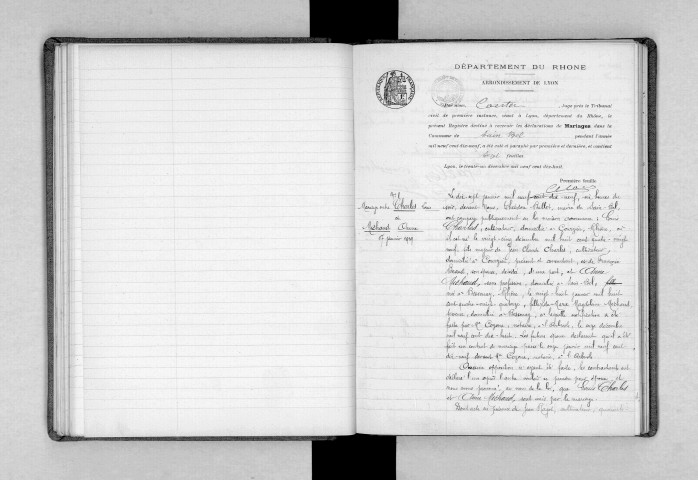 DÉPARTEMENT DU RHONE
ARRONDISSEMENT DE LYON
Juge près le Tribunal
civil de première instance, séant à Lyon, département du Rhône, le
présent Registre destiné à recevoir les déclarations de Mariages dans la
Commune de Sain Bel pendant l'année
mil neuf cent dix-neuf, a été coté et paraphé par première et dernière, et contient
sept feuilles
Lyon, le trente-un décembre mil neuf cent dix-huit.
Première feuille
N° 1
Mariage entre Charles Louis
et
Michaud
17 janvier 1919
Le dix sept janvier mil neuf cent dix neuf, heures du
soir, devant Nous, maire de Sain-Bel
ont comparu publiquement en la maison commune : Louis
Charles, cultivateur, domicilié à Courzieu, Rhône, où
il est né le vingt-cinq décembre mil huit cent quatre-vingt
neuf, fils majeur de Jean Claude Charles, cultivateur,
domicilié à Courzieu, présent et consentant, et de Françoise
son épouse, décédée, d'une part, et
Michaud, sans profession, domiciliée à Sain-Bel,
née à Bessenay, Rhône, le vingt huit janvier mil huit
cent quatre-vingt-quatorze, fille de Marie Magdeleine Michaud,
domiciliée à Bessenay, à laquelle notification a été
faite par Me notaire, à l'Arbresle, le onze décembre
mil neuf cent dix-huit. Les futurs époux déclarent qu'il a été
fait un contrat de mariage le onze janvier mil neuf cent
dix-neuf devant Me notaire, à l'Arbresle
Aucune opposition n'ayant été faite, les contractants ont
déclaré l'un après l'autre vouloir se prendre pour époux, et
nous avons prononcé, au nom de la loi, que Louis Charles
et Michaud, sont unis par le mariage.
Dont acte en présence de Jean cultivateur,